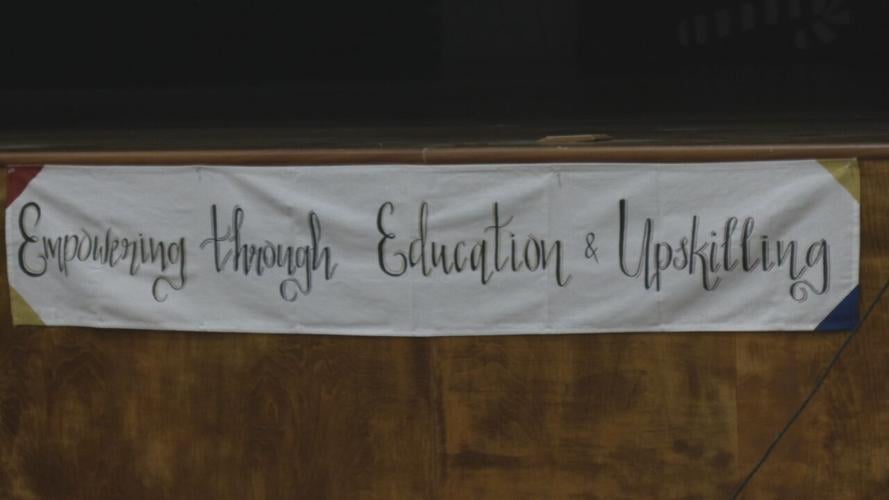 Empowering through Education & Upskilling